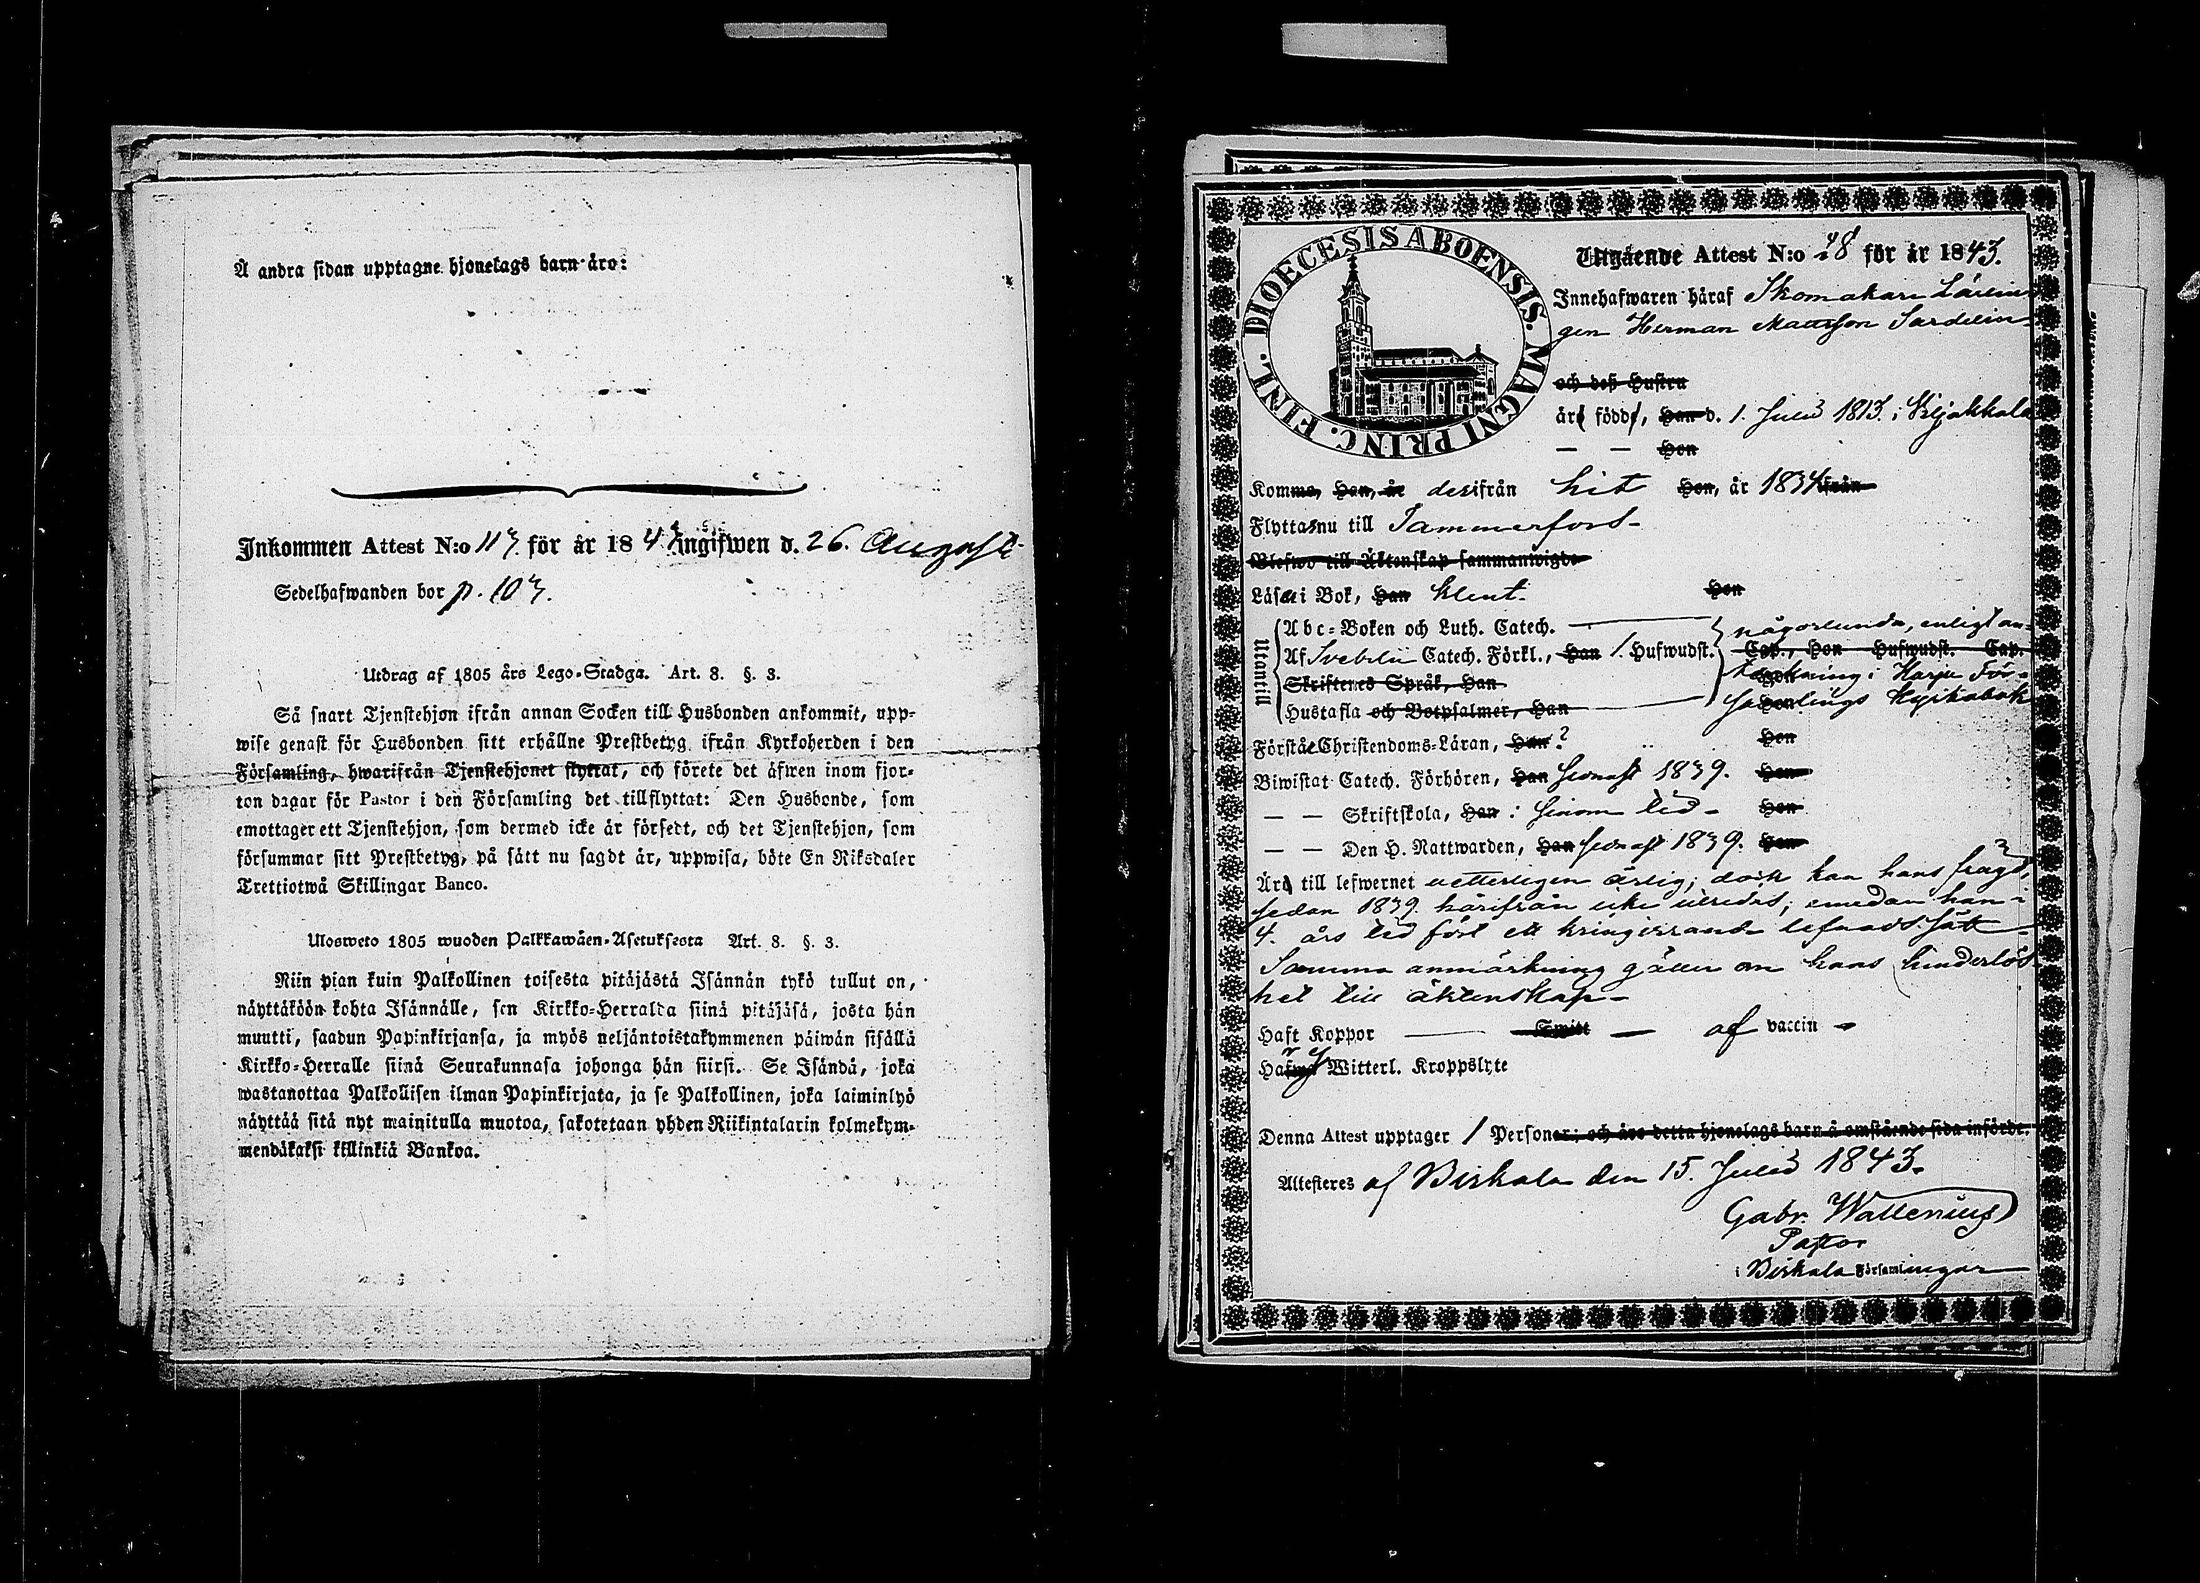 Å andra sidan upptagne hjonelags barn äro:
Inkommen Attest N:o 117. för år 1843 ingifwen d. 26. Augusti
Sedelhafwanden bor p. 107.
Utdrag af 1805 års Lego-Stadga. Art. 8. §. 3.
Så snart Tjenstehjon ifrån annan Socken till Husbonden ankommit, upp-
wise genast för Husbonden sitt erhållne Prestbetyg ifrån Kyrkoherden i den
Församling, hwarifrån Tjenstehjonet flyttat, och förete det äfwen inom fjor-
ton dagar för Pastor i den Församling det tillflyttat: Den Husbonde, som
emottager ett Tjenstehjon, som dermed icke är försedt, och det Tjenstehjon, som
försummar sitt Prestbetyg, på sätt nu sagdt är, uppwisa, böte En Riksdaler
Trettiotwå Skillingar Banco.
Ulosweto 1805 wuoden Palkkawäen-Asetuksesta Art. 8. §. 3.
Niin pian kuin Palkollinen toisesta pitäjästä Isännän tykö tullut on,
näyttäköön kohta Isännälle, sen Kirkko-Herralda siinä pitäjäsä, josta hän
muutti, saadun Papinkirjansa, ja myös neljäntoistakymmenen päiwän sisällä
Kirkko-Herralle siinä Seurakunnasa johonga hän siirsi. Se Isändä, joka
wastanottaa Palkollisen ilman Papinkirjata, ja se Palkollinen, joka laiminlyö
näyttää sitä nyt mainitulla muotoa, sakotetaan yhden Riikintalarin kolmekym-
mendäkaksi killinkiä Bankoa.
DIOECESIS ABOENSIS. MAGNI PRINC. FINL.
Utgående Attest N:o 28 för år 1843.
Innehafwaren häraf Skomakare Lärlin-
gen Herman Mattsson Sardelin
och deß Hustru
äro födde, Han d. 1. Julii 1813. i Viljakkala
— — Hon
Komma, Han, år derifrån hit Hon, år 1834 ifrån
Flyttas nu till Tammerfors
Blefwo till Äktenskap sammanwigde
Läsa i Bok, Han klent. Hon
Utantill
Abc-Boken och Luth. Catech. någorlunda, enligt an-
Af Svebelii Catech. Förkl., Han 1. Hufwudst. Cap., Hon Hufwudst. Cap.
Skriftenes Språk, Han teckning i Harju För-
Hustafla och Botpsalmer, Han samlings Kyrkobok
Förstår Christendoms-Läran, Han ? Hon
Biwistat Catech. Förhören, Han senast 1839. Hon
— — Skriftskola, Han i sinom tid Hon
— — Den H. Nattwarden, Han senast 1839. Hon
Äro till lefwernet vetterligen ärlig; dock kan hans frägd,
sedan 1839. härifrån icke utredas; emedan han i
4. års tid fört ett kringirrande lefnadssätt
Samma anmärkning gäller om hans hinderlös-
het till äktenskap
Haft Koppor Smitt af vaccin
Hafwa Witterl. Kroppslyte
Denna Attest upptager 1 Personer; och äro detta hjonelags barn å omstående sida införde.
Attesteres af Birkala den 15. Julii 1843.
Gabr. Wallenius
Pastor
i Birkala Församlingar